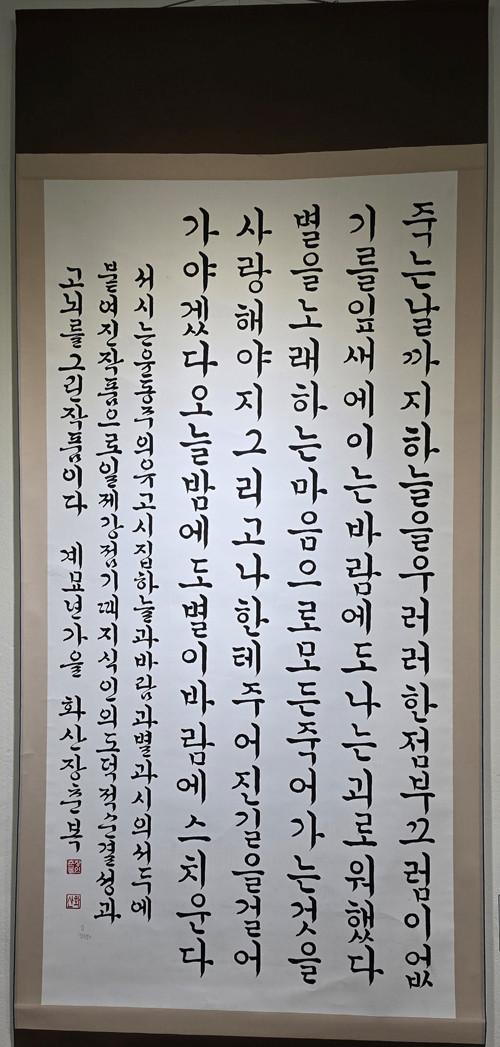 죽는날까지하늘을우러러한점부끄럼이없
기를잎새에이는바람에도나는괴로워했다
별을노래하는마음으로모든죽어가는것을
사랑해야지그리고나한테주어진길을걸어
가야겠다오늘밤에도별이바람에스치운다
서시는윤동주의유고시집하늘과바람과별과시의서두에
붙여진작품으로일제강점기때지식인의도덕적순결성과
고뇌를그린작품이다 계묘년가을 화산장춘복